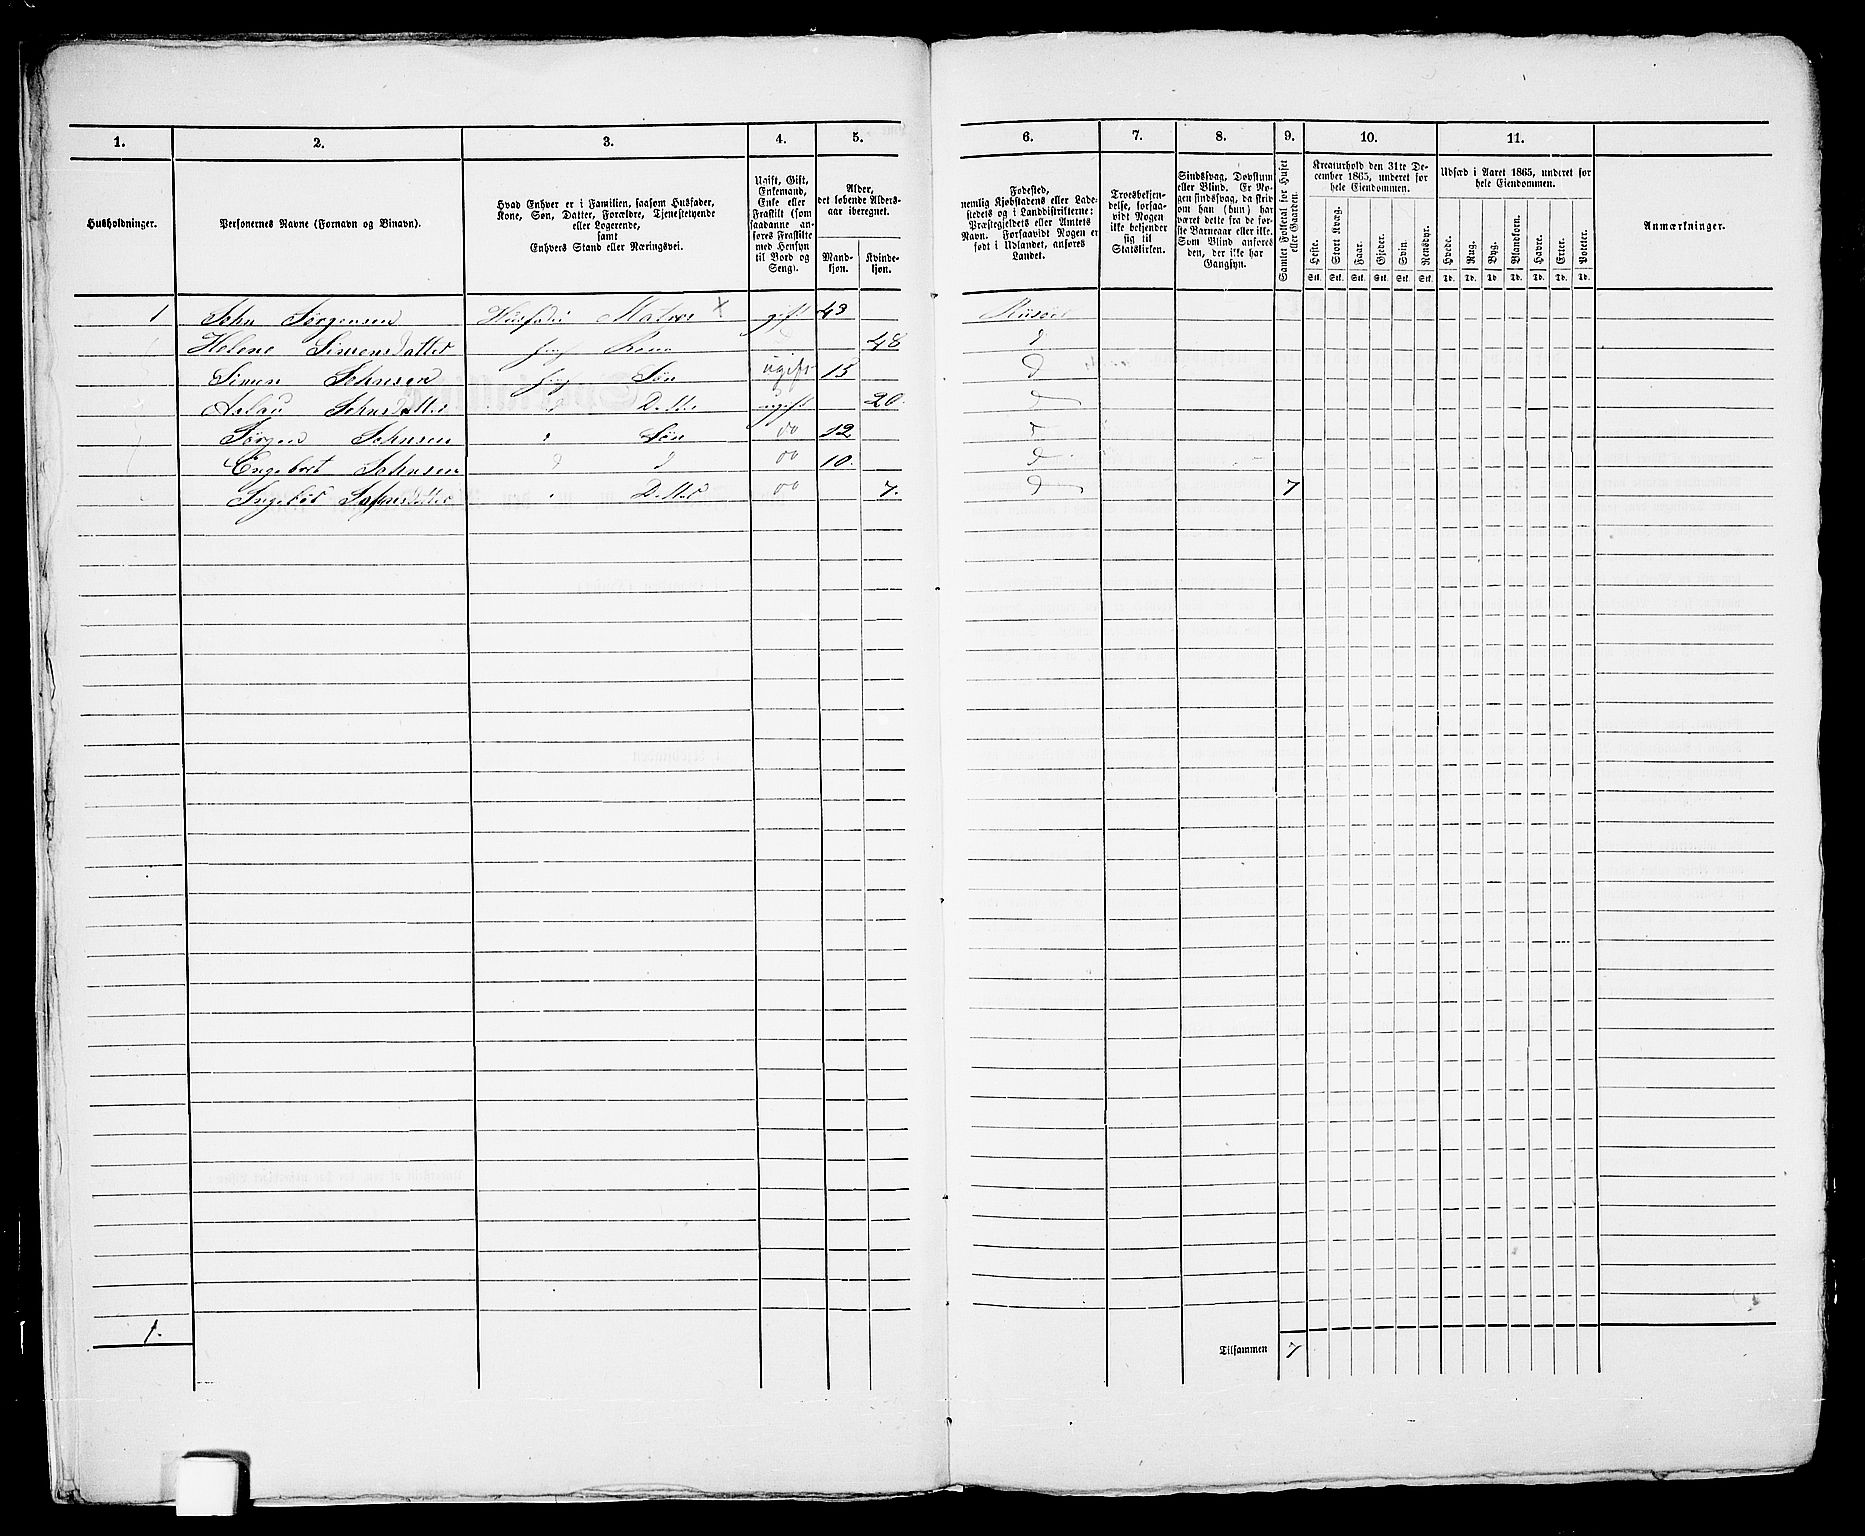 1. 2. 3. 4. 5. 6. 7. 8. 9. 10. 11.
Husholdninger.
Personernes Navne (Fornavn og Binavn).
Hvad Enhver er i Familien, saasom Husfader,
Kone, Søn, Datter, Forældre, Tjenestetyende
eller Logerende,
samt
Enhvers Stand eller Næringsvei.
Ugift, Gift,
Enkemand,
Enke eller
Fraskilt (som
saadanne an-
føres Fraskilte
med Hensyn
til Bord og
Seng).
Alder,
det løbende Alders-
aar iberegnet.
Mand-
kjøn.
Kvinde-
kjøn.
Fødested,
nemlig Kjøbstadens eller Lade-
stedets og i Landdistrikterne:
Præstegjeldets eller Amtets
Navn. Forsaavidt Nogen er
født i Udlandet, anføres
Landet.
Troesbekjen-
delse, forsaa-
vidt Nogen
ikke bekjender
sig til
Statskirken.
Sindssvag, Døvstum
eller Blind. Er No-
gen sindssvag, da skriv
om han (hun) har
været dette fra de før-
ste Barneaar eller ikke.
Som Blind anføres
den, der ikke har
Gangsyn.
Samlet Folketal for Huset
eller Gaarden.
Kreaturhold den 31te De-
cember 1865, underet for
hele Eiendommen.
Heste. Stort Kvæg. Faar. Gjeder. Svin. Rensdyr.
Stk. Stk. Stk. Stk. Stk. Stk.
Udsæd i Aaret 1865, underet for
hele Eiendommen.
Hvede. Rug. Byg. Blandkorn. Havre. Erter. Poteter.
Td. Td. Td. Td. Td. Td. Td.
Anmærkninger.
1 John Sørgensen Husfader Matros x gift 49 Risøer
Helene SimensDatter Kone 48 d
Simen Johnsen Søn ugift 15 d
Aslau JohnsDatter Datter ugift 20. d
Sørgen Johnsen Søn do 12 d
Engebret Johnsen d d do 10. d
Ingebor JohnsDatter Datter do 7. d 7
1. Tilsammen 7